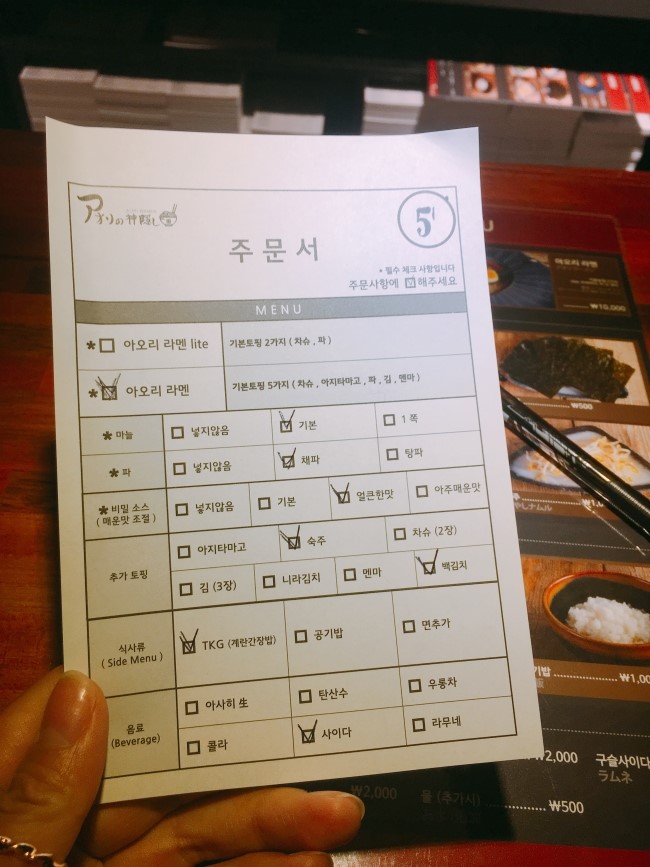 アオリの神隠し
5
주문서
* 필수 체크 사항입니다
주문사항에 ☑해주세요
MENU
* □ 아오리 라멘 lite 기본토핑 2가지 ( 차슈 , 파 )
* ☑ 아오리 라멘 기본토핑 5가지 ( 차슈 , 아지타마고 , 파 , 김 , 멘마 )
* 마늘 □ 넣지않음 ☑ 기본 □ 1 쪽
* 파 □ 넣지않음 ☑ 채파 □ 탕파
* 비밀 소스 ( 매운맛 조절 ) □ 넣지않음 □ 기본 ☑ 얼큰한맛 □ 아주매운맛
추가 토핑 □ 아지타마고 ☑ 숙주 □ 차슈 (2장)
□ 김 (3장) □ 니라김치 □ 멘마 ☑ 백김치
식사류 ( Side Menu ) ☑ TKG (계란간장밥) □ 공기밥 □ 면추가
음료 (Beverage) □ 아사히 生 □ 탄산수 □ 우롱차
□ 콜라 ☑ 사이다 □ 라무네
U
아오리 라멘
₩10,000
₩500
ナムル
기밥 ₩1,00
₩2,000 구슬사이다
ラムネ
₩2,000 물 (추가시) ₩500